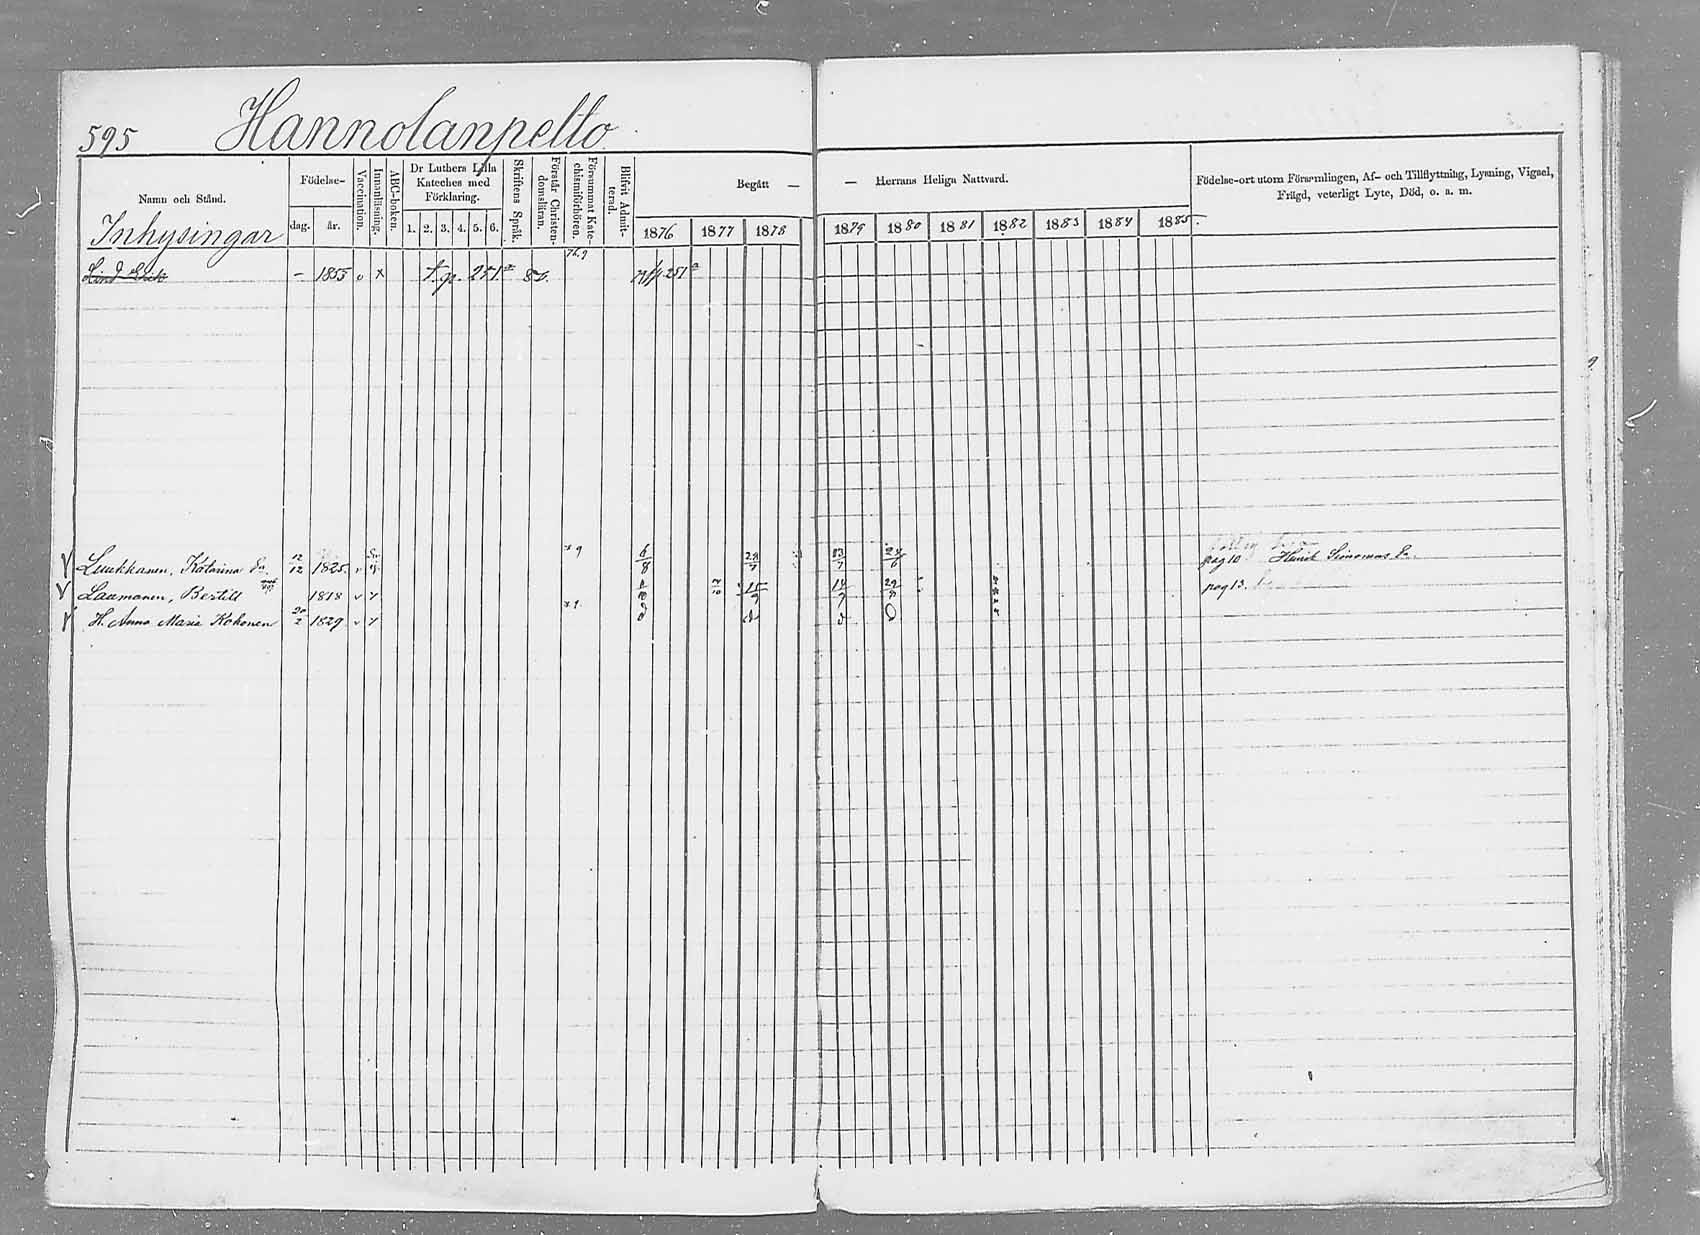 595 Hannolanpelto.
Namn och Stånd.
Födelse-
dag. år.
Vaccination.
Innanläsning.
ABC-boken.
Dr Luthers Lilla Kateches med Förklaring.
1. 2. 3. 4. 5. 6.
Skriftens Språk.
Förstår Christendomsläran.
Försummat Katechismiförhören.
Blifvit Admitterad.
Begått — — Herrans Heliga Nattvard.
1876 1877 1878 1879 1880 1881 1882 1883 1884 1885
Födelse-ort utom Församlingen, Af- och Tillflyttning, Lysning, Vigsel,
Frägd, veterligt Lyte, Död, o. a. m.
Inhysingar
76.9
Lind Erik – 1855 v x
Luukkanen, Katarina 12/12 1825 6/8 pag 10 Henrik Simonss
Laumanen, Bertill 1818 v pag 13.
H. Anna Maria Kokonen 20/2 1829 v